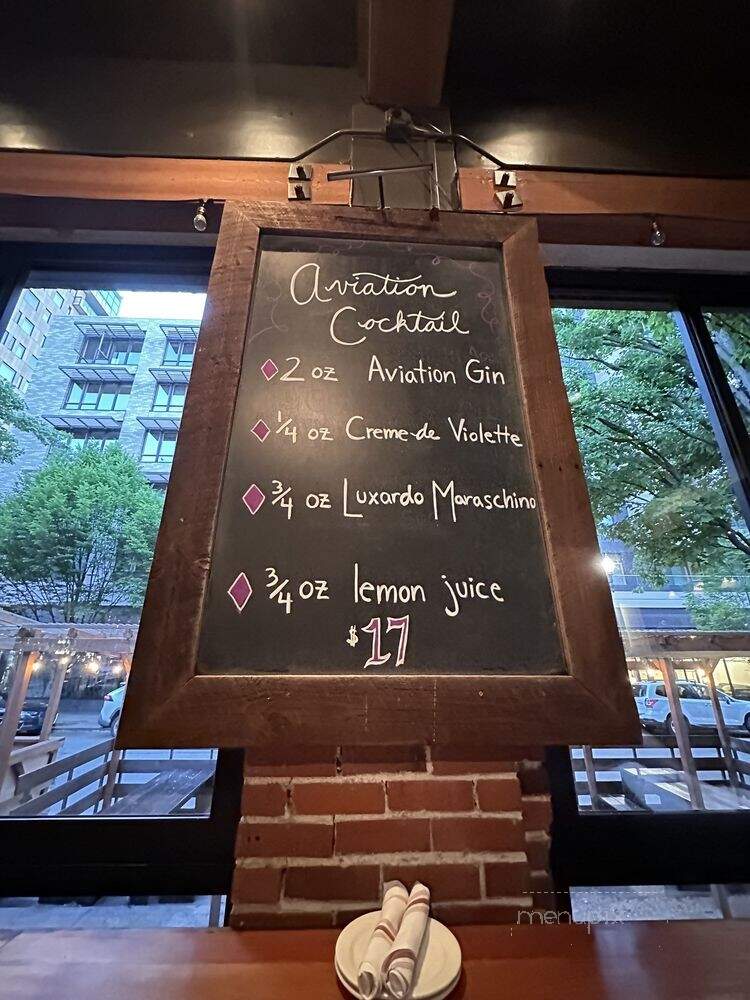 Aviation
Cocktail
2 oz Aviation Gin
1/4 oz Creme de Violette
3/4 oz Luxardo Maraschino
3/4 oz lemon juice
$17
menupix